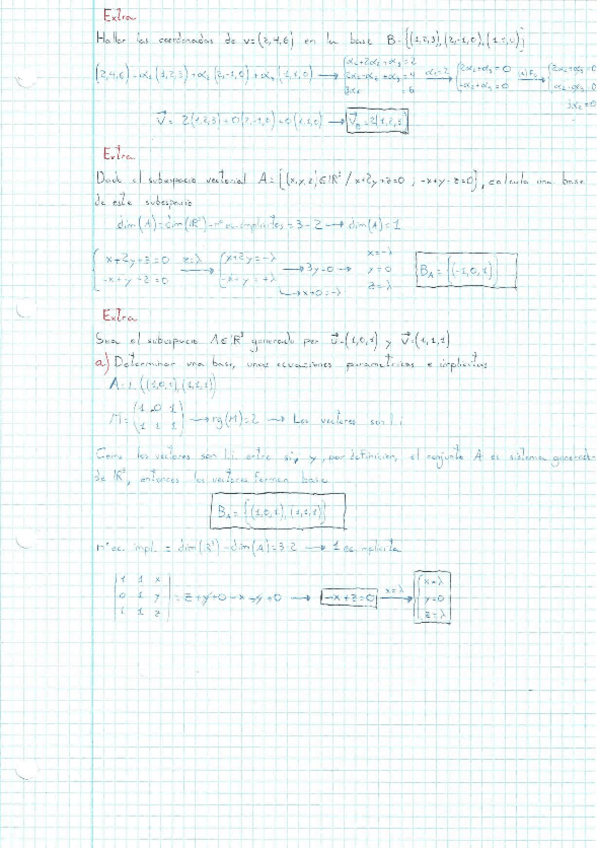 Extra
Hallar las coordenadas de v=(2,4,6) en la base B={(1,2,3),(2,-1,0),(1,1,0)}
(2,4,6)=α₁(1,2,3)+α₂(2,-1,0)+α₃(1,1,0) → {α₁+2α₂+α₃=2 2α₁-α₂+α₃=4 3α₁ =6 → α₁=2 {2α₂+α₃=0 -α₂+α₃=0
Extra
Dado el subespacio vectorial A={(x,y,z)∈ℝ³/x+2y+z=0 ; -x+y-z=0}, calcula una base
de este subespacio
dim(A)=dim(ℝ³)-nºec.implícitas=3-2→dim(A)=1
z=λ → {x+2y=-λ → 3y=0 → x=-λ y=0 z=λ B_A={(-1,0,1)}
→x+0=-λ
Extra
Sea el subespacio A∈ℝ³ generado por u=(1,0,1) y v=(1,1,1)
a) Determinar una base, unas ecuaciones parametricas e implicitas
M=(1 0 1 / 1 1 1) → rg(M)=2 → Los vectores son l.i
Como los vectores son l.i entre si, y, por definicion, el conjunto A es sistema generador
de ℝ³, entonces los vectores forman base
B_A={(1,0,1),(1,1,1)}
nºec. impl.=dim(ℝ³)-dim(A)=3-2 → 1 ec implicita
|1 1 x / 0 1 y / 1 1 z| = z+y+0-x-y+0 → -x+z=0 x=λ → {x=λ y=0 z=λ